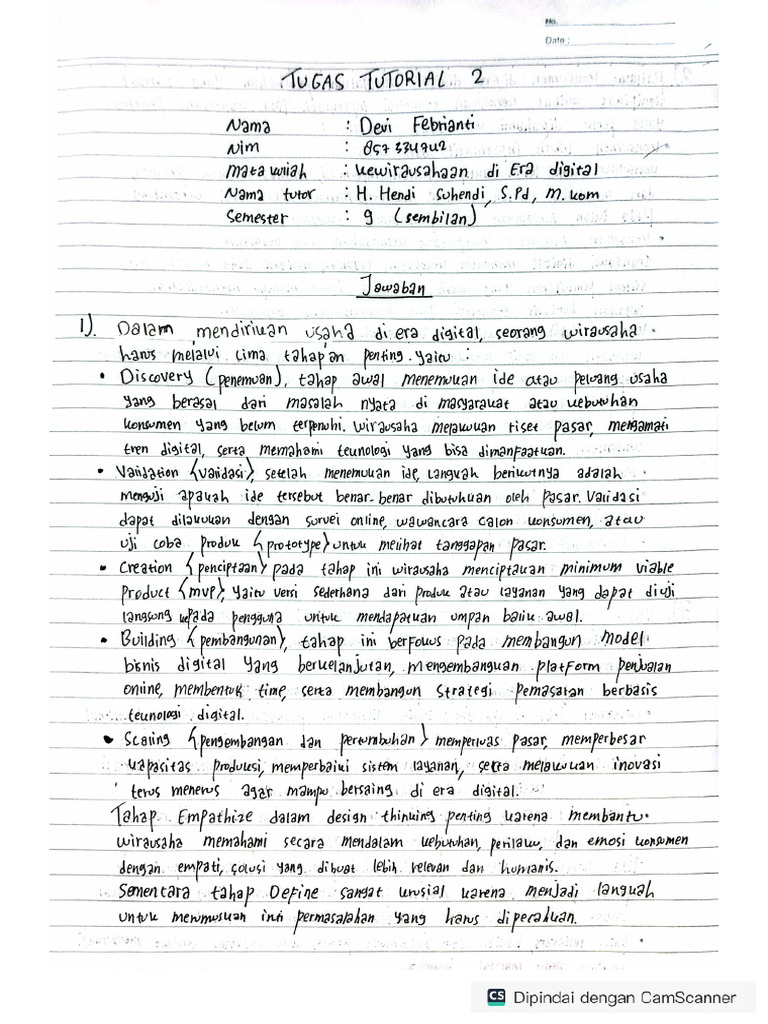 No.
Date :
TUGAS TUTORIAL 2
Nama : Devi Febrianti
Nim : 057334742
Mata kuliah : Kewirausahaan di Era digital
Nama tutor : H. Hendi Suhendi, S.Pd, M.kom
Semester : 9 (sembilan)
Jawaban
1). Dalam mendirikan usaha di era digital, seorang wirausaha
harus melalui lima tahapan penting. yaitu :
• Discovery (penemuan), tahap awal menemukan ide atau peluang usaha
yang berasal dari masalah nyata di masyarakat atau kebutuhan
konsumen yang belum terpenuhi. wirausaha melakukan riset pasar, mengamati
tren digital, serta memahami teknologi yang bisa dimanfaatkan.
• Validation (validasi), setelah menemukan ide, langkah berikutnya adalah
menguji apakah ide tersebut benar-benar dibutuhkan oleh pasar. Validasi
dapat dilakukan dengan survei online, wawancara calon konsumen, atau
uji coba produk (prototype) untuk melihat tanggapan pasar.
• Creation (penciptaan) pada tahap ini wirausaha menciptakan minimum viable
product (mvp), yaitu versi sederhana dari produk atau layanan yang dapat diuji
langsung kepada pengguna untuk mendapatkan umpan balik awal.
• Building (pembangunan), tahap ini berfokus pada membangun model
bisnis digital yang berkelanjutan, mengembangkan platform penjualan
online, membentuk time, serta membangun strategi pemasaran berbasis
teknologi digital.
• Scaling (pengembangan dan pertumbuhan) memperluas pasar, memperbesar
kapasitas produksi, memperbaiki sistem layanan, serta melakukan inovasi
terus menerus agar mampu bersaing di era digital.
Tahap Empathize dalam design thinking penting karena membantu
wirausaha memahami secara mendalam kebutuhan, perilaku, dan emosi konsumen
dengan empati, solusi yang dibuat lebih relevan dan humanis.
Sementara tahap Define sangat krusial karena menjadi langkah
untuk merumuskan inti permasalahan yang harus dipecahkan.
CS Dipindai dengan CamScanner